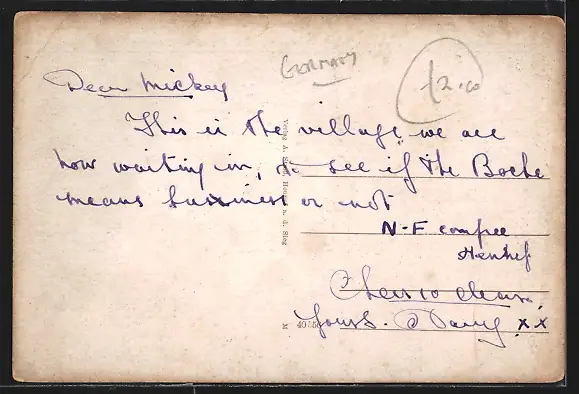 GERMANY
£2.00
Dear Mickey
This is the village we are
now waiting in, to see if the Boche
means business or not
N-F compree
Hennef
Cheerio dear,
Yours. Davy xx
Verlag A. Hennef a. d. Sieg
M 40